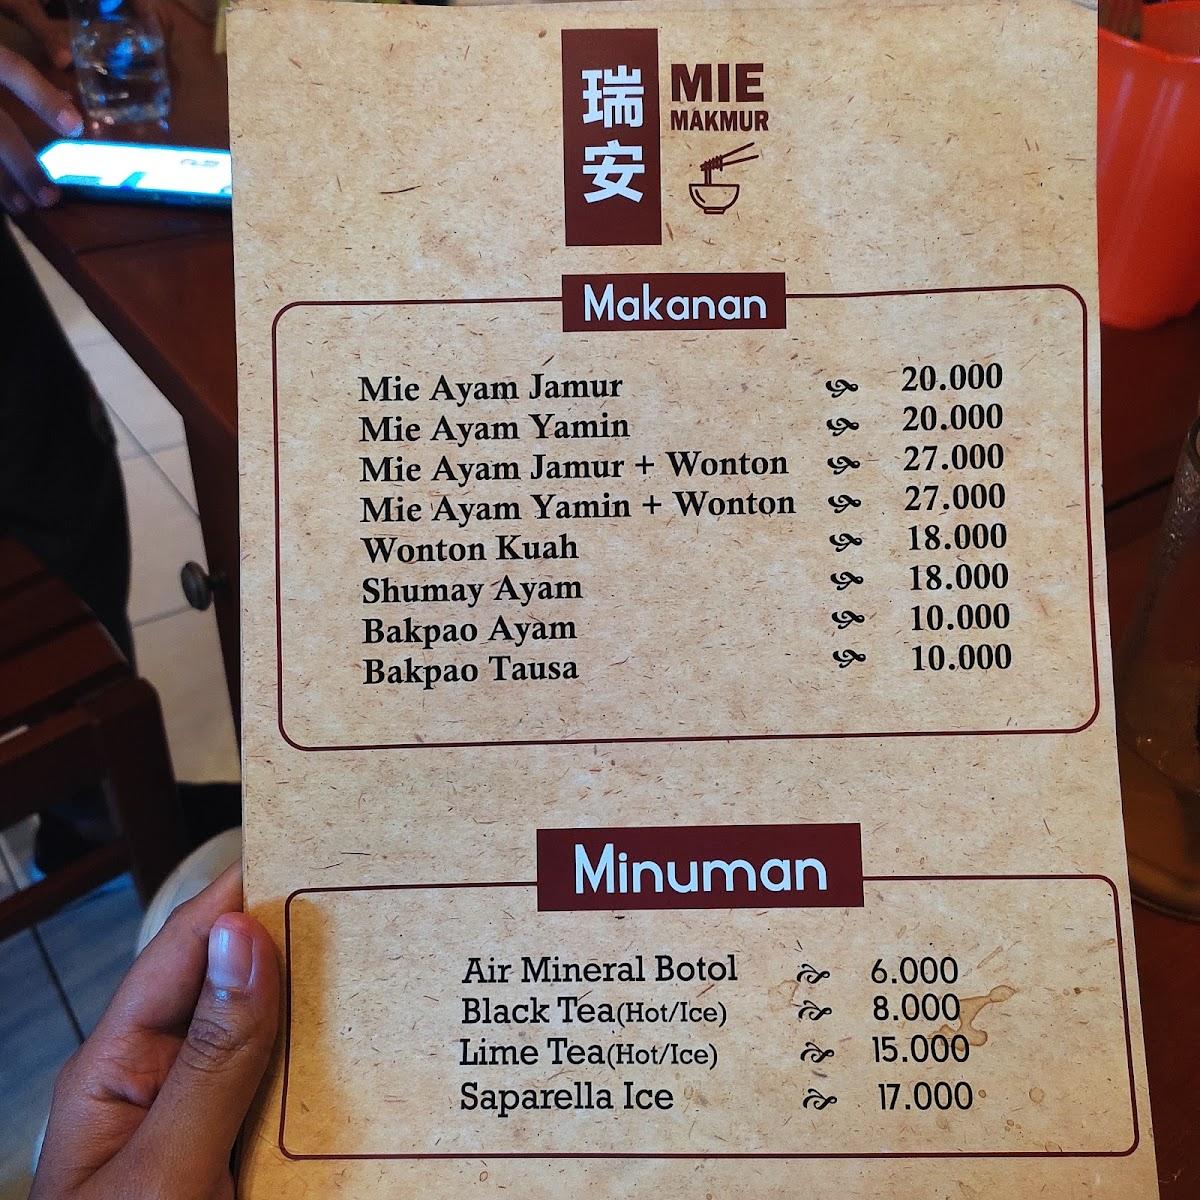 瑞安
MIE
MAKMUR
Makanan
Mie Ayam Jamur 20.000
Mie Ayam Yamin 20.000
Mie Ayam Jamur + Wonton 27.000
Mie Ayam Yamin + Wonton 27.000
Wonton Kuah 18.000
Shumay Ayam 18.000
Bakpao Ayam 10.000
Bakpao Tausa 10.000
Minuman
Air Mineral Botol 6.000
Black Tea(Hot/Ice) 8.000
Lime Tea(Hot/Ice) 15.000
Saparella Ice 17.000